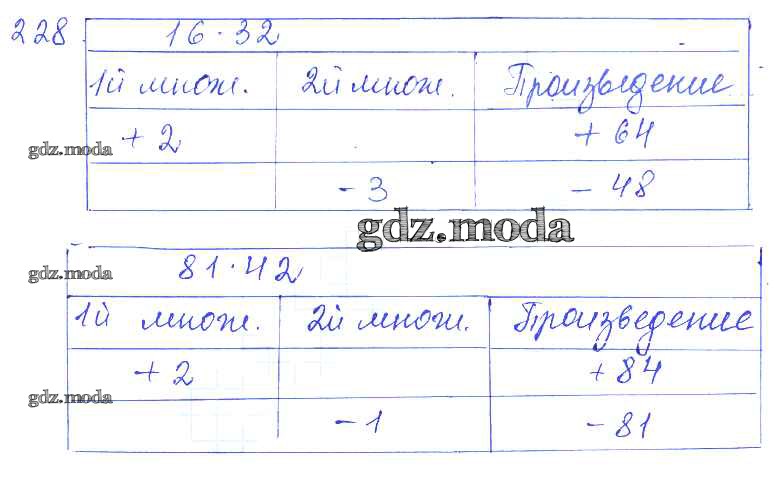 228 16·32
1й множ. 2й множ. Произведение
+2 +64
gdz.moda
-3 -48
gdz.moda
81·42
gdz.moda
1й множ. 2й множ. Произведение
+2 +84
gdz.moda
-1 -81